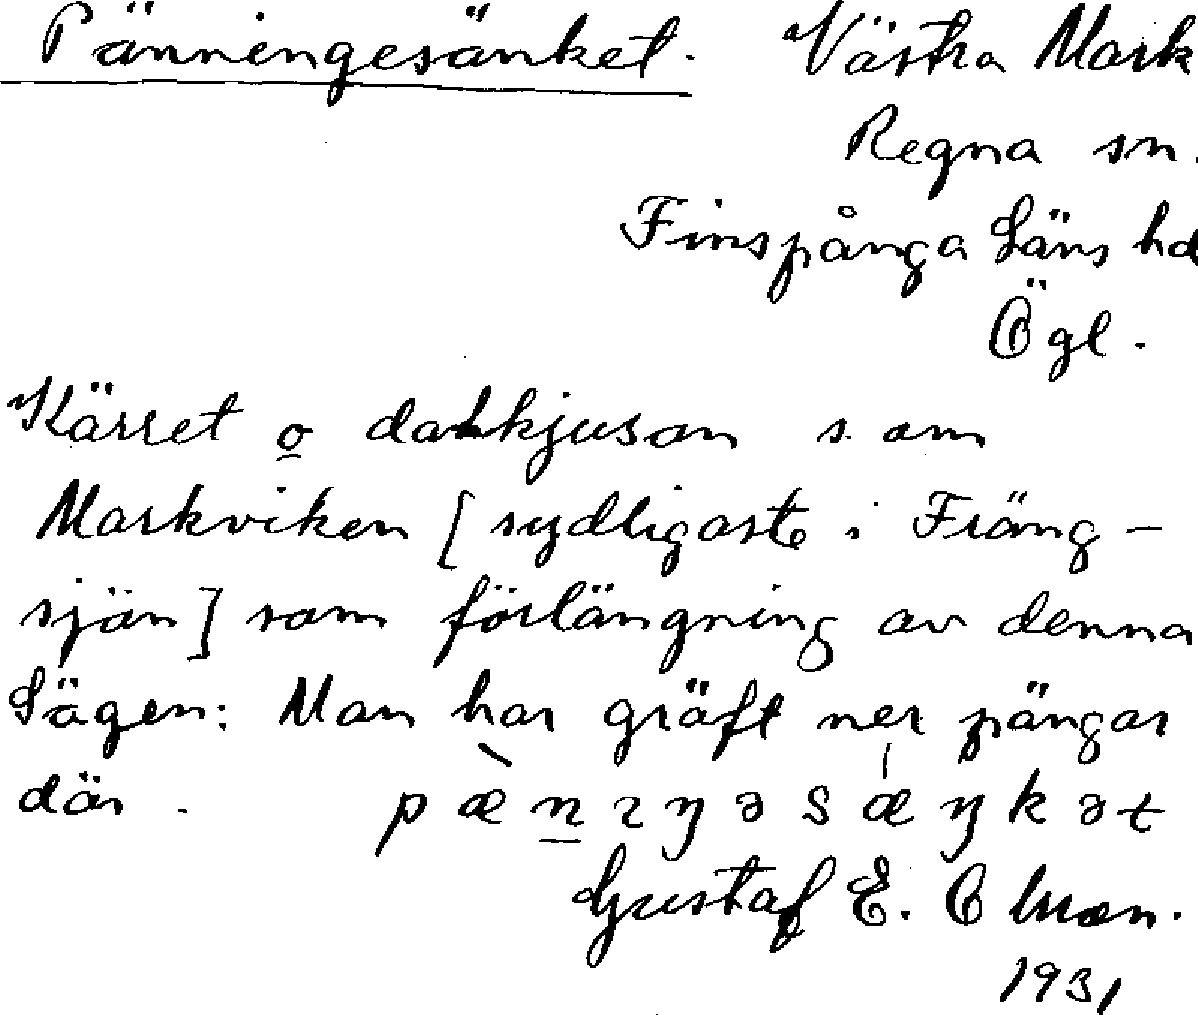 Pänningesänket. Västra Mark
Regna sn.
Finspånga Läns hd
Ögl.
Kärret o dalkjusan s. om
Markviken [sydligaste i Fräng-
sjön] som förlängning av denna
Sägen: Man har gräft ner pängar
där. pæ̀n̲ɪŋəsǽŋkət
Gustaf E.
1931